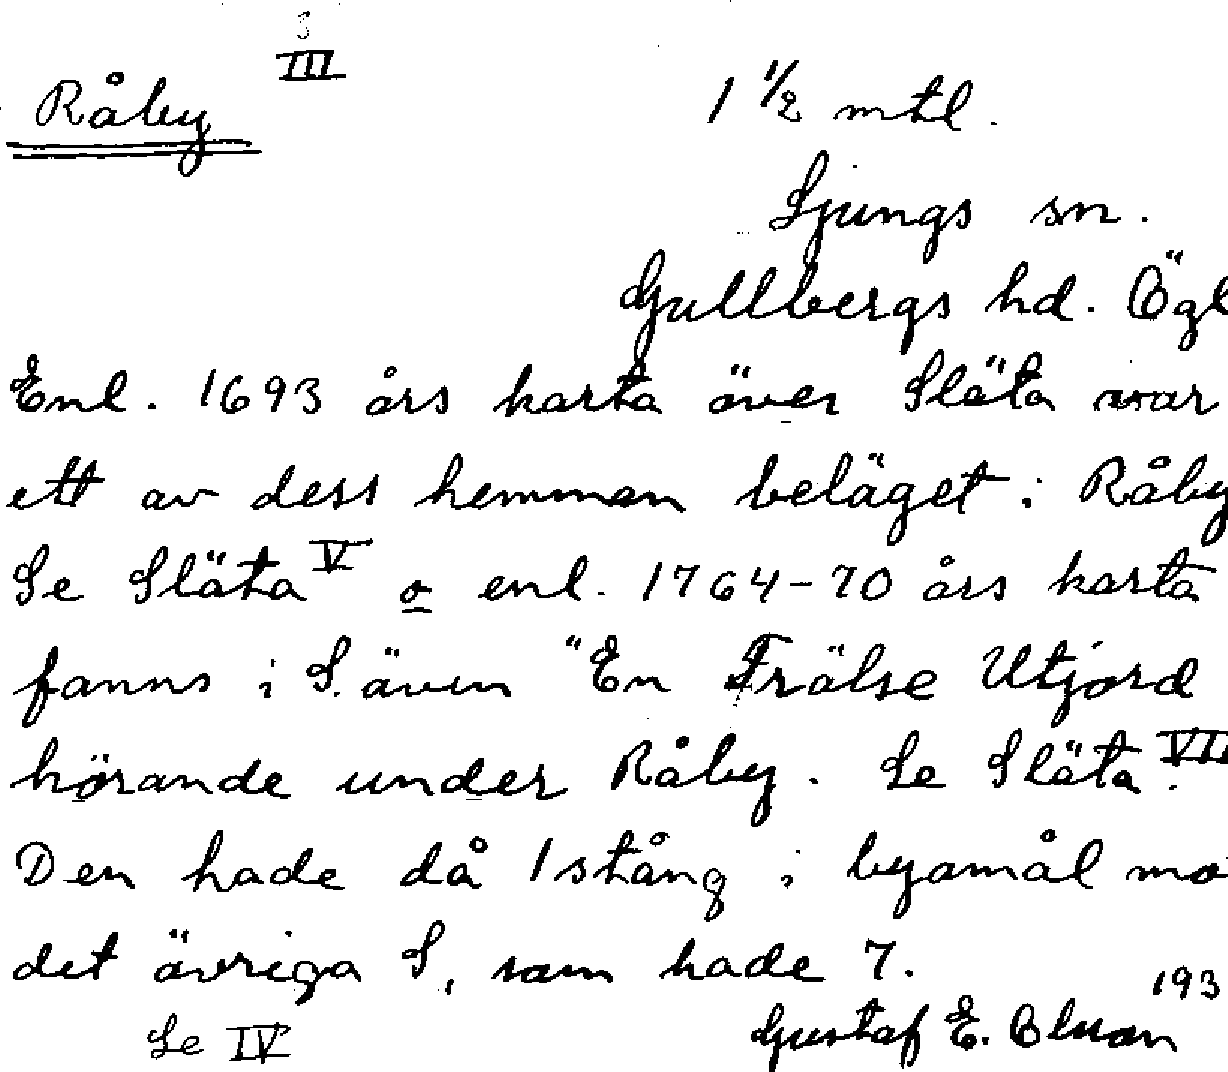 III
Råby 1 1/2 mtl.
Ljungs sn.
Gullbergs hd. Ögl
Enl. 1693 års karta över Släta var
ett av dess hemman beläget i Råby
Se Släta V o enl. 1764-70 års karta
fanns i S. även "En Frälse Utjord
hörande under Råby. Se Släta VII.
Den hade då 1 stång i byamål mo
det övriga S, som hade 7.
193
Se IV Gustaf E.